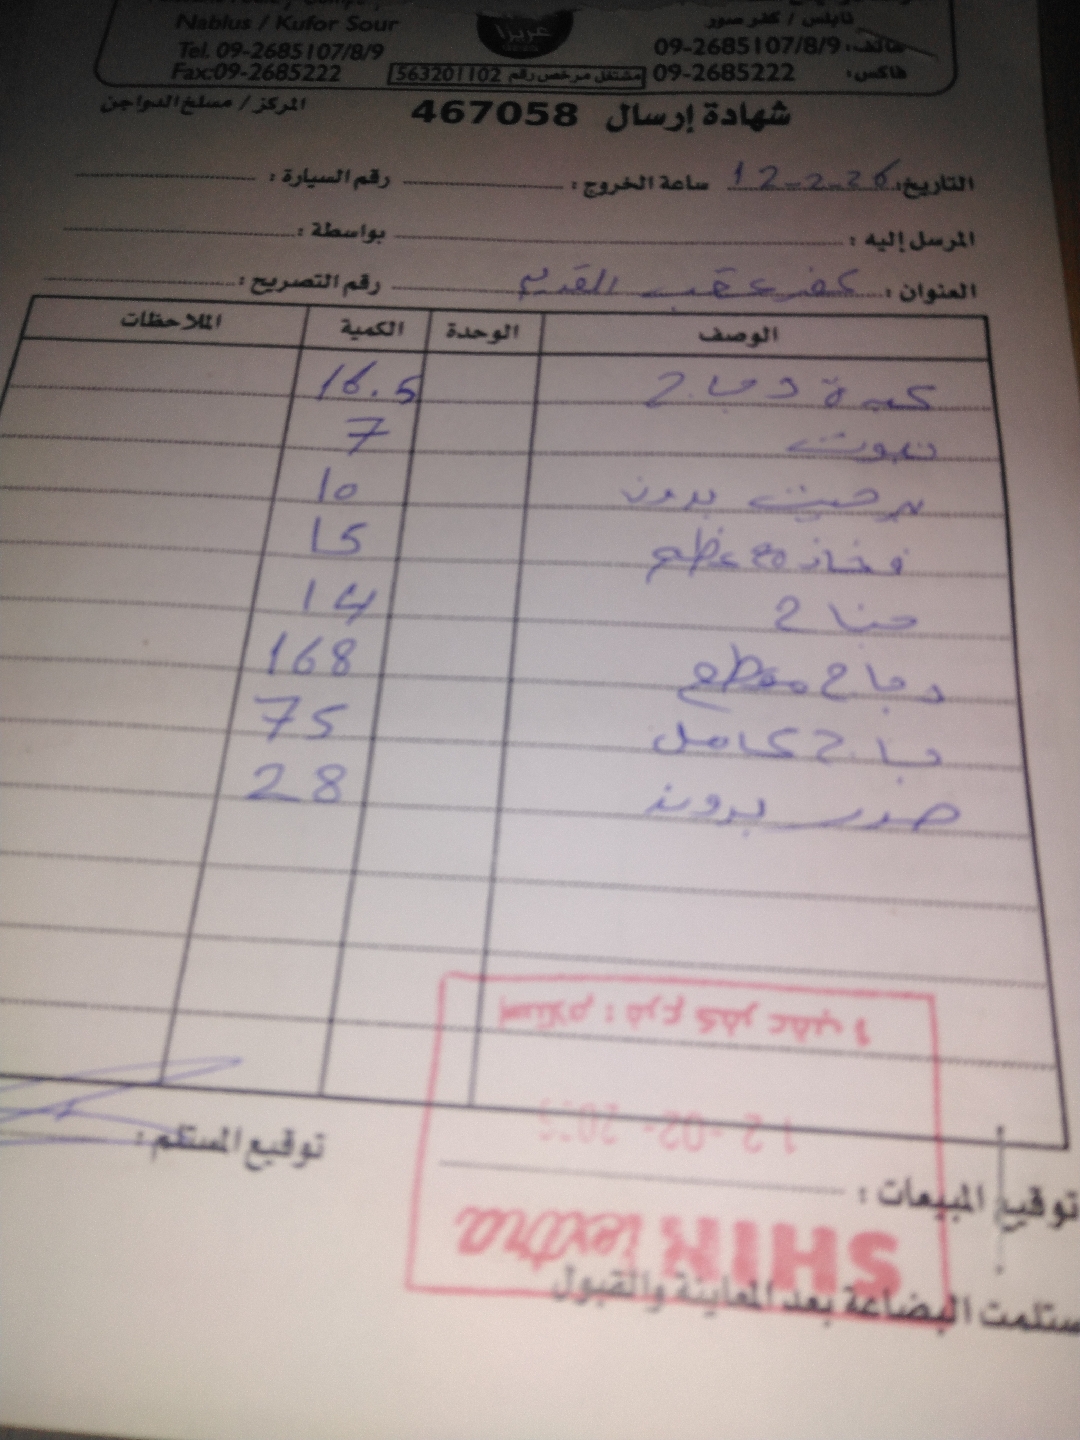 Nablus / Kufor Sour
نابلس / كفر صور
Tel. 09-2685107/8/9
هاتف: 09-2685107/8/9
Fax:09-2685222
فاكس: 09-2685222
عزيزا
مشتغل مرخص رقم 563201102
شهادة إرسال 467058
المركز / مسلخ الدواجن
التاريخ: 12-2-26 ساعة الخروج: رقم السيارة:
المرسل إليه: بواسطة:
العنوان: كفر عقب القديم رقم التصريح:
الوصف الوحدة الكمية الملاحظات
كبدة دجاج 16.5
7
بدون 10
فخاذ مع عظم 15
14
دجاج مقطع 168
جاج كامل 75
صدر بروند 28
استلام: فرع كفر عقب
توقيع المستلم:
توقيع المبيعات:
SHINI extra
ستلمت البضاعة بعد المعاينة والقبول